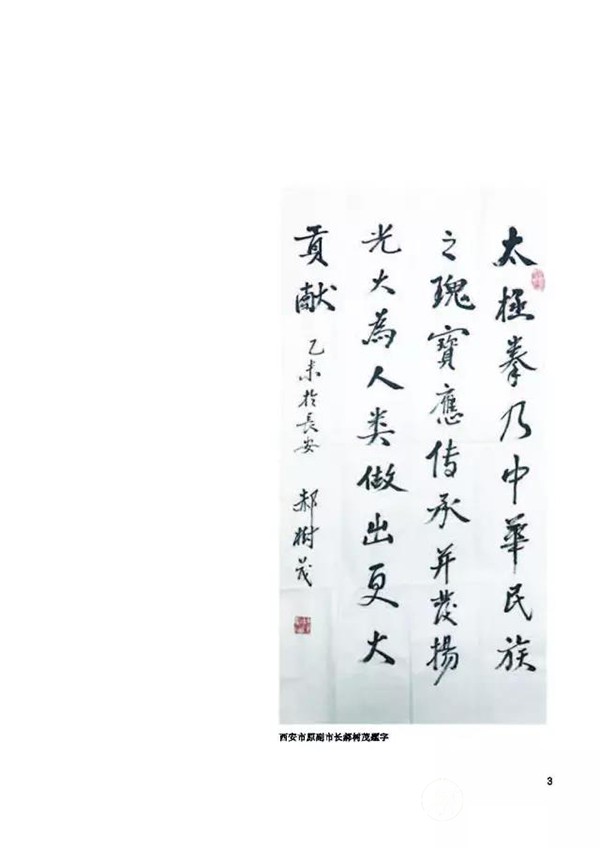 太極拳乃中華民族
之瑰寶應传承并发揚
光大為人类做出更大
貢献
乙未於長安 郝樹茂
西安市原副市长郝树茂题字
3